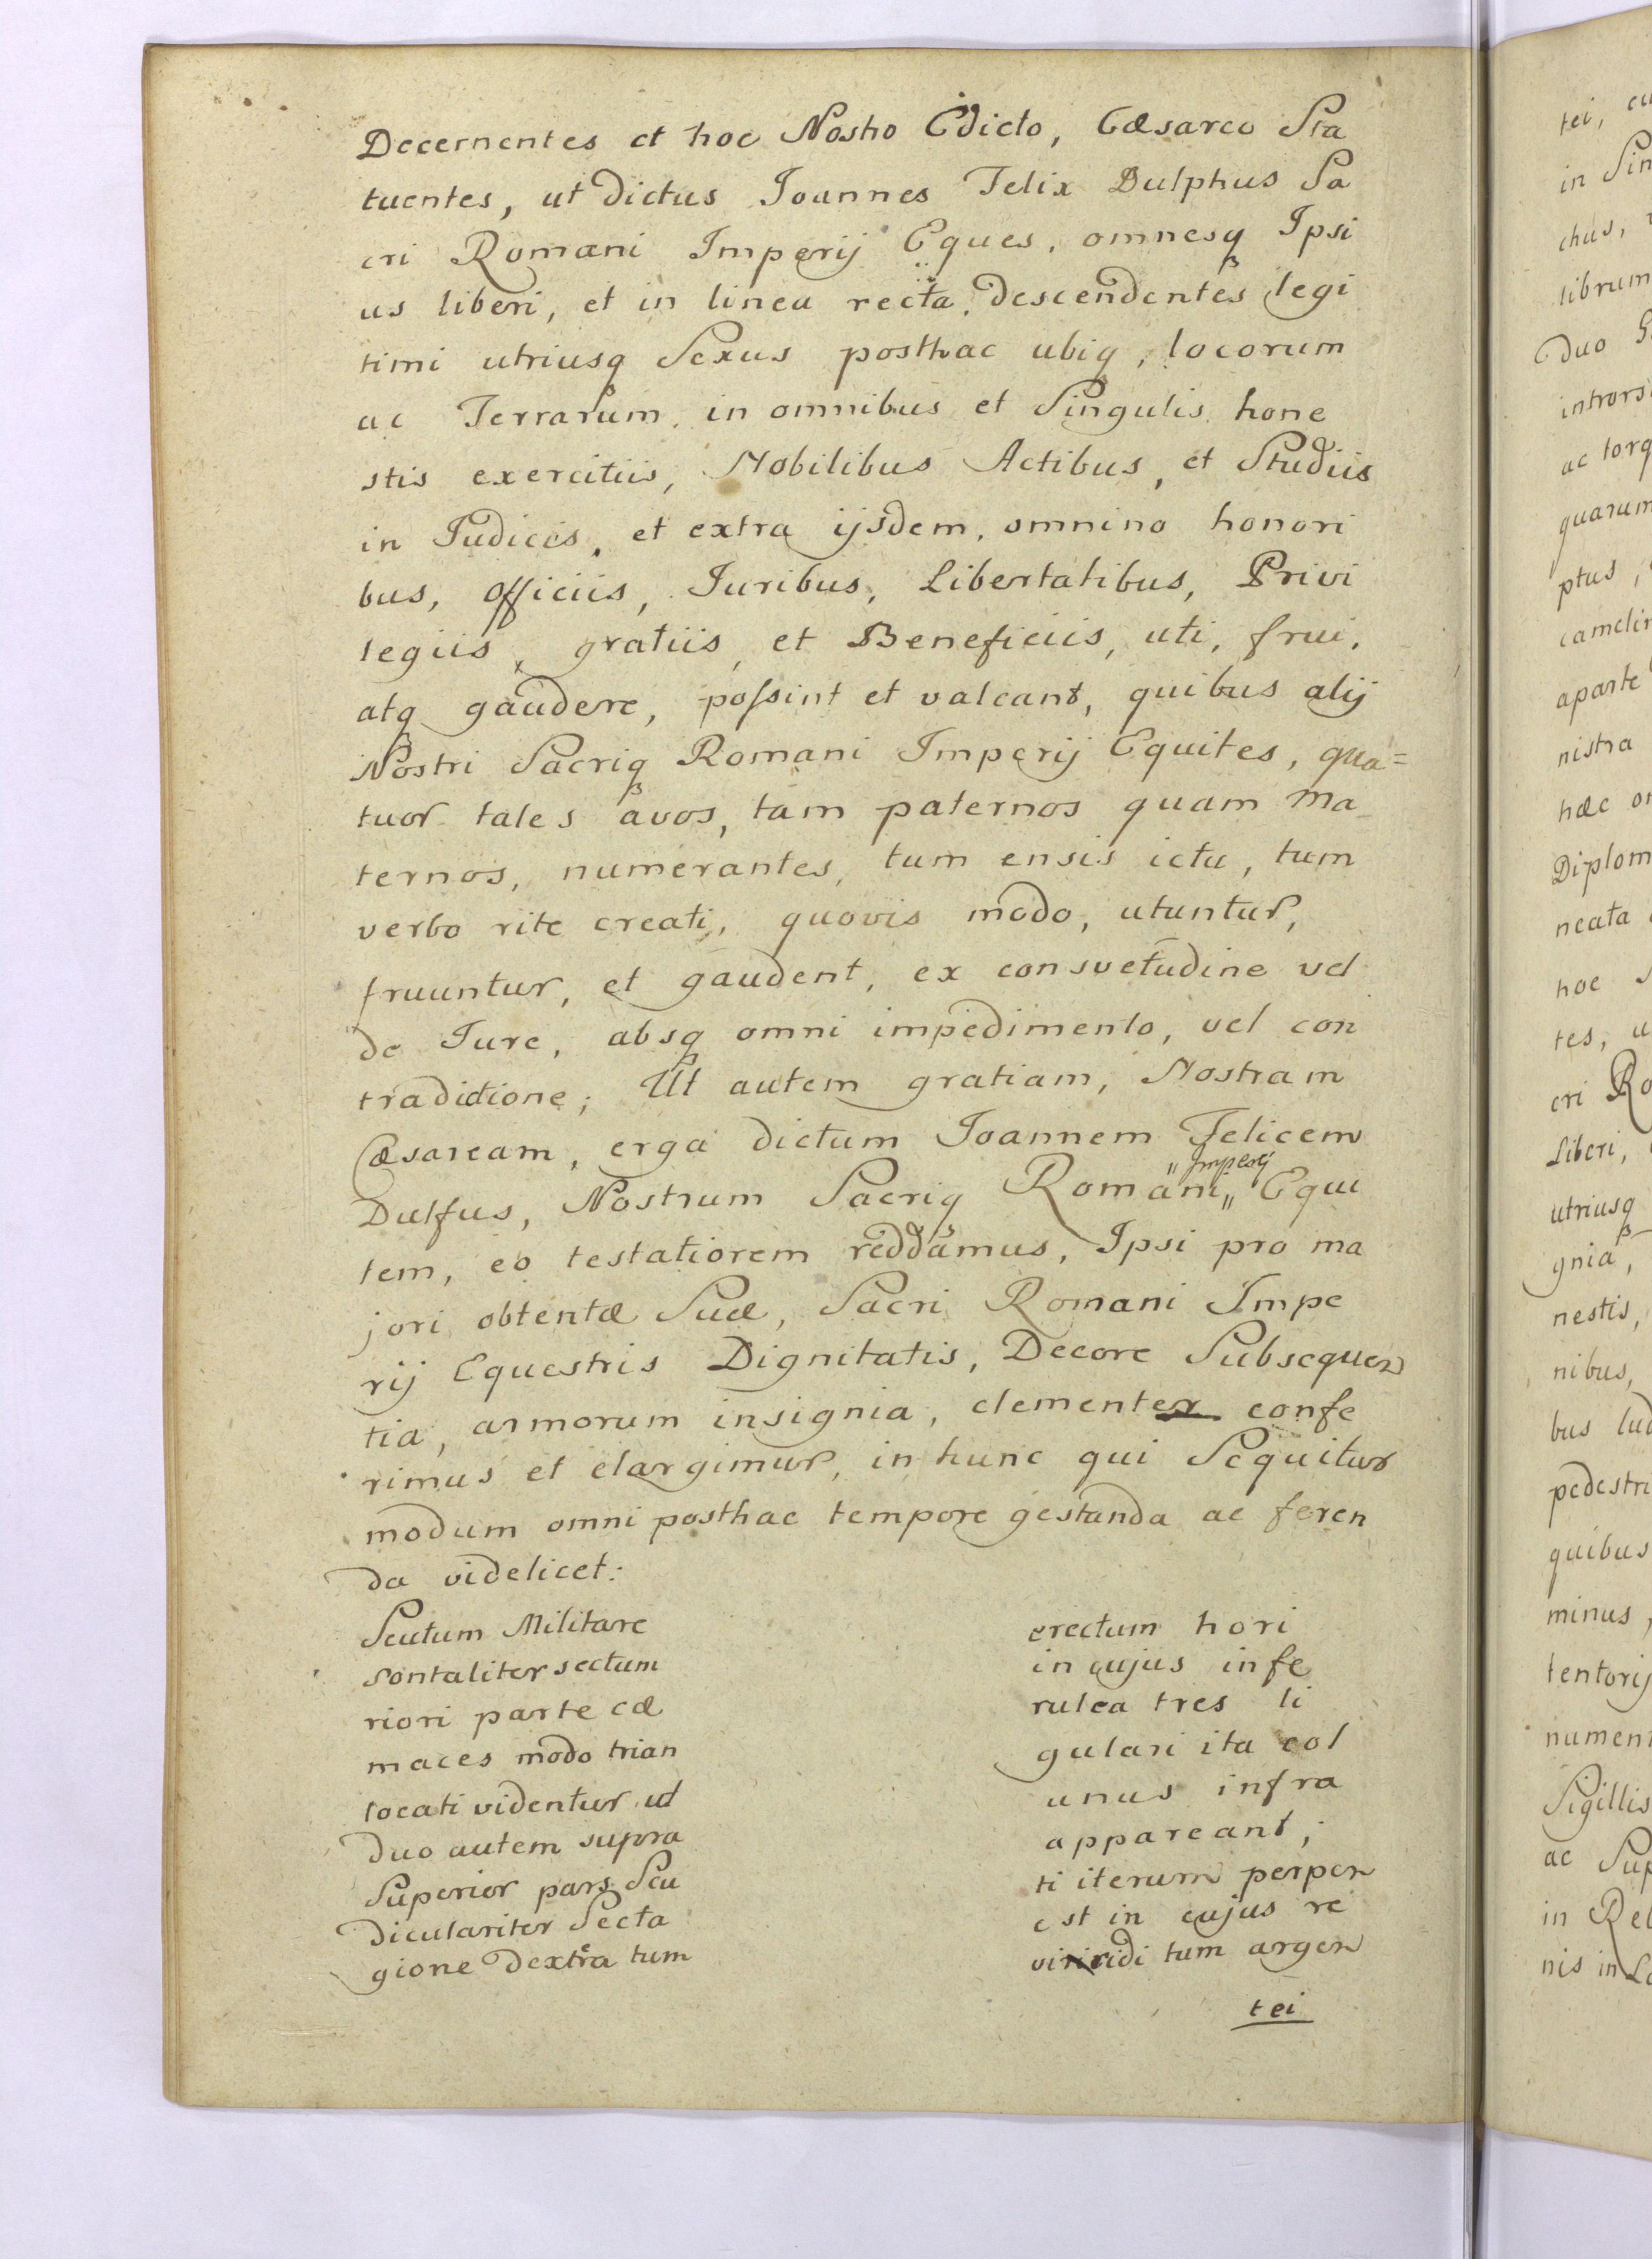 Decernentes et hoc Nostro Edicto, Cæsareo Sta
tuentes, ut dictus Joannes Felix Dulphus Sa
cri Romani Imperij Eques, omnesq Ipsi
us liberi, et in linea recta, descendentes legi
timi utriusq Sexus posthac ubiq, locorum
ac Terrarum, in omnibus et Singulis hone
stis exercitiis, Nobilibus Actibus, et Studiis
in Judiciis, et extra ijsdem, omnino honori
bus, officiis, Juribus, Libertatibus, Privi
legiis, gratiis, et Beneficiis, uti, frui,
atq gaudere, possint et valeant, quibus alij
Nostri Sacriq Romani Imperij Equites, qua=
tuor tales avos, tam paternos quam ma
ternos, numerantes, tum ensis ictu, tum
verbo rite creati, quovis modo, utuntur,
fruuntur, et gaudent, ex consvetudine vel
de Jure, absq omni impedimento, vel con
tradictione; Ut autem gratiam, Nostram
Cæsaream, erga dictum Joannem Felicem
Dulfus, Nostrum Sacriq Romani " Imperij " Equi
tem, eo testatiorem reddamus, Ipsi pro ma
jori obtentæ Suæ, Sacri Romani Impe
rij Equestris Dignitatis, Decore Subsequen
tia, armorum insignia, clementer confe
rimus et elargimur, in hunc qui Sequitur
modum omni posthac tempore gestanda ac feren
da videlicet:
Scutum Militare erectum hori
sontaliter sectum in cujus infe
riori parte cæ rulea tres li
maces modo trian gulari ita col
locati videntur ut unus infra
duo autem supra appareant;
Superior pars Scu ti iterum perpen
diculariter Secta est in cujus re
gione dextra tum viriridi tum argen
tei
tei, cu
in Sin
chus,
librum
duo
intrors
ac torq
quarum
ptus,
camelin
aparte
nistra
hæc or
Diplom
neata
hoc
tes, u
cri Ro
Liberi,
utriusq
gnia,
nestis,
nibus,
bus lud
pedestri
quibus
minus,
tentorij
nument
Sigillis
ac Sup
in Rel
nis in Lo